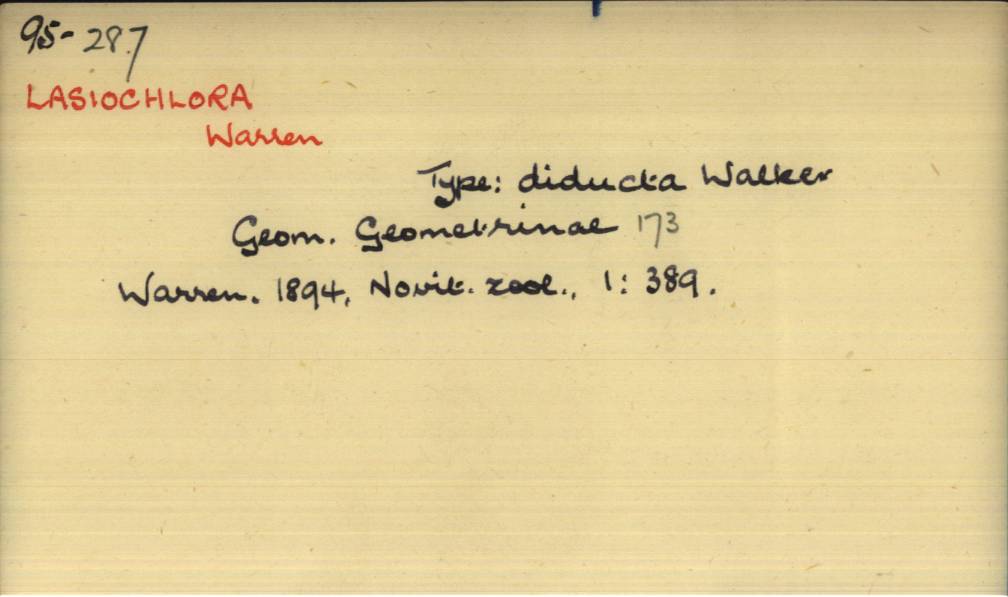 95-287
LASIOCHLORA
Warren
Type: diducta Walker
Geom. Geometrinae 173
Warren. 1894, Novit. zool., 1: 389.